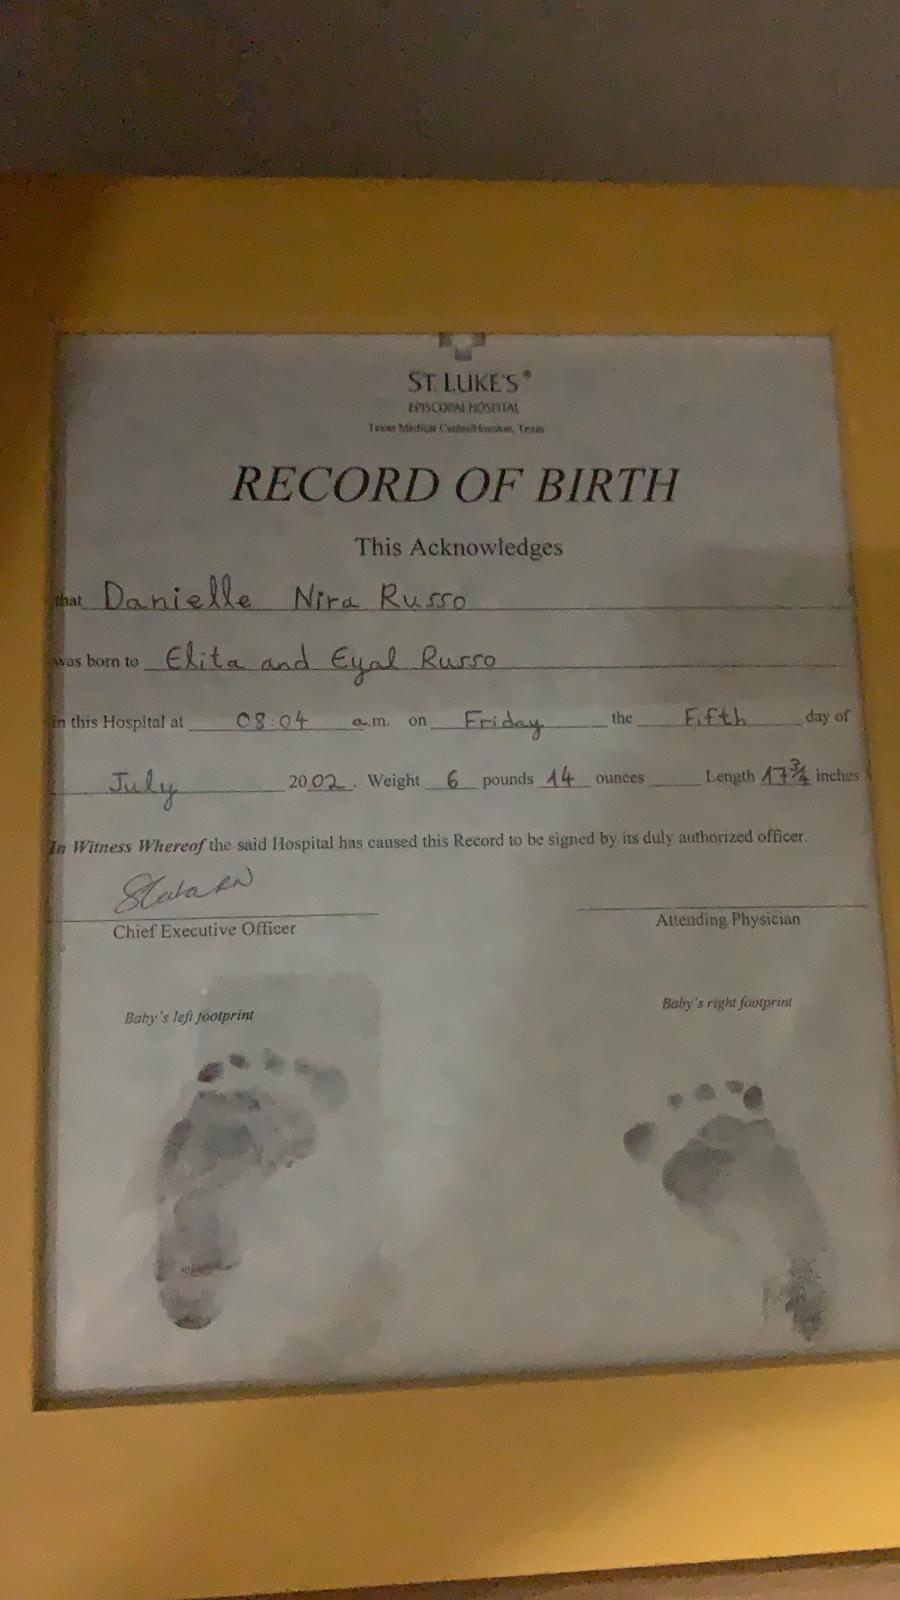 ST. LUKE'S®
EPISCOPAL HOSPITAL
Texas Medical Center/Houston, Texas
RECORD OF BIRTH
This Acknowledges
that Danielle Nira Russo
was born to Elita and Eyal Russo
in this Hospital at 08:04 a.m. on Friday the Fifth day of
July 2002. Weight 6 pounds 14 ounces Length 17 3/4 inches
In Witness Whereof the said Hospital has caused this Record to be signed by its duly authorized officer.
RN
Chief Executive Officer Attending Physician
Baby's left footprint Baby's right footprint